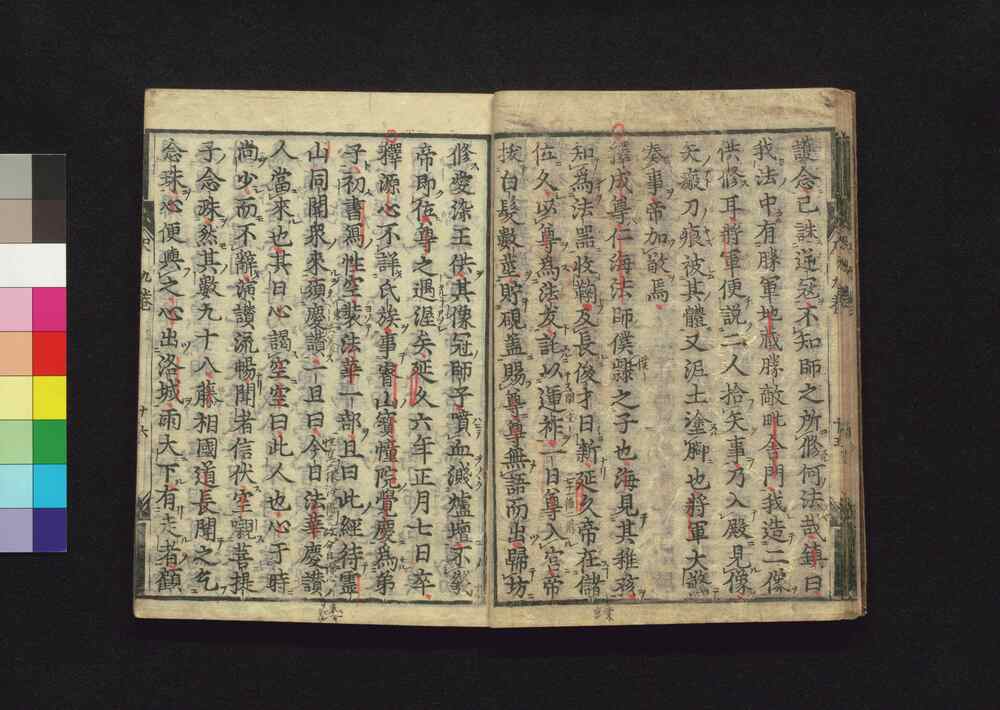 護念已誅逆冦不知師之所修何法哉鎮曰
我法中有勝軍地藏勝敵毗舍門我造二像
供修耳將軍便説二人拾矢事乃入殿見像
矢瘢刀痕被其體又泥土塗脚也將軍大驚
奏事帝加歎焉
釋成尊仁海法師僕隷之子也海見其稚孩
知爲法器收鞠及長俊才日新延久帝在儲
位久以尊爲法友託以運祚一日尊入宮帝
拔白髮數莖貯硯蓋賜尊尊無語而出歸坊
修愛染王供其像冠師子噴血濺爐壇不幾
帝即位尊之遇渥矣延久六年正月七日卒
釋源心不詳氏族事睿山寳幢院覺慶爲弟
子初書寫性空裝法華一部且曰此經待靈
山同聞衆來須慶讃一旦曰今日法華慶讃
人當來也其日心謁空空曰此人也心于時
尚少而不辭演讃流暢聞者信伏空嚫菩提
子念珠然其數九十八藤相國道長聞之乞
念珠心便與之心出洛城雨大下有走者顧
九卷
十六